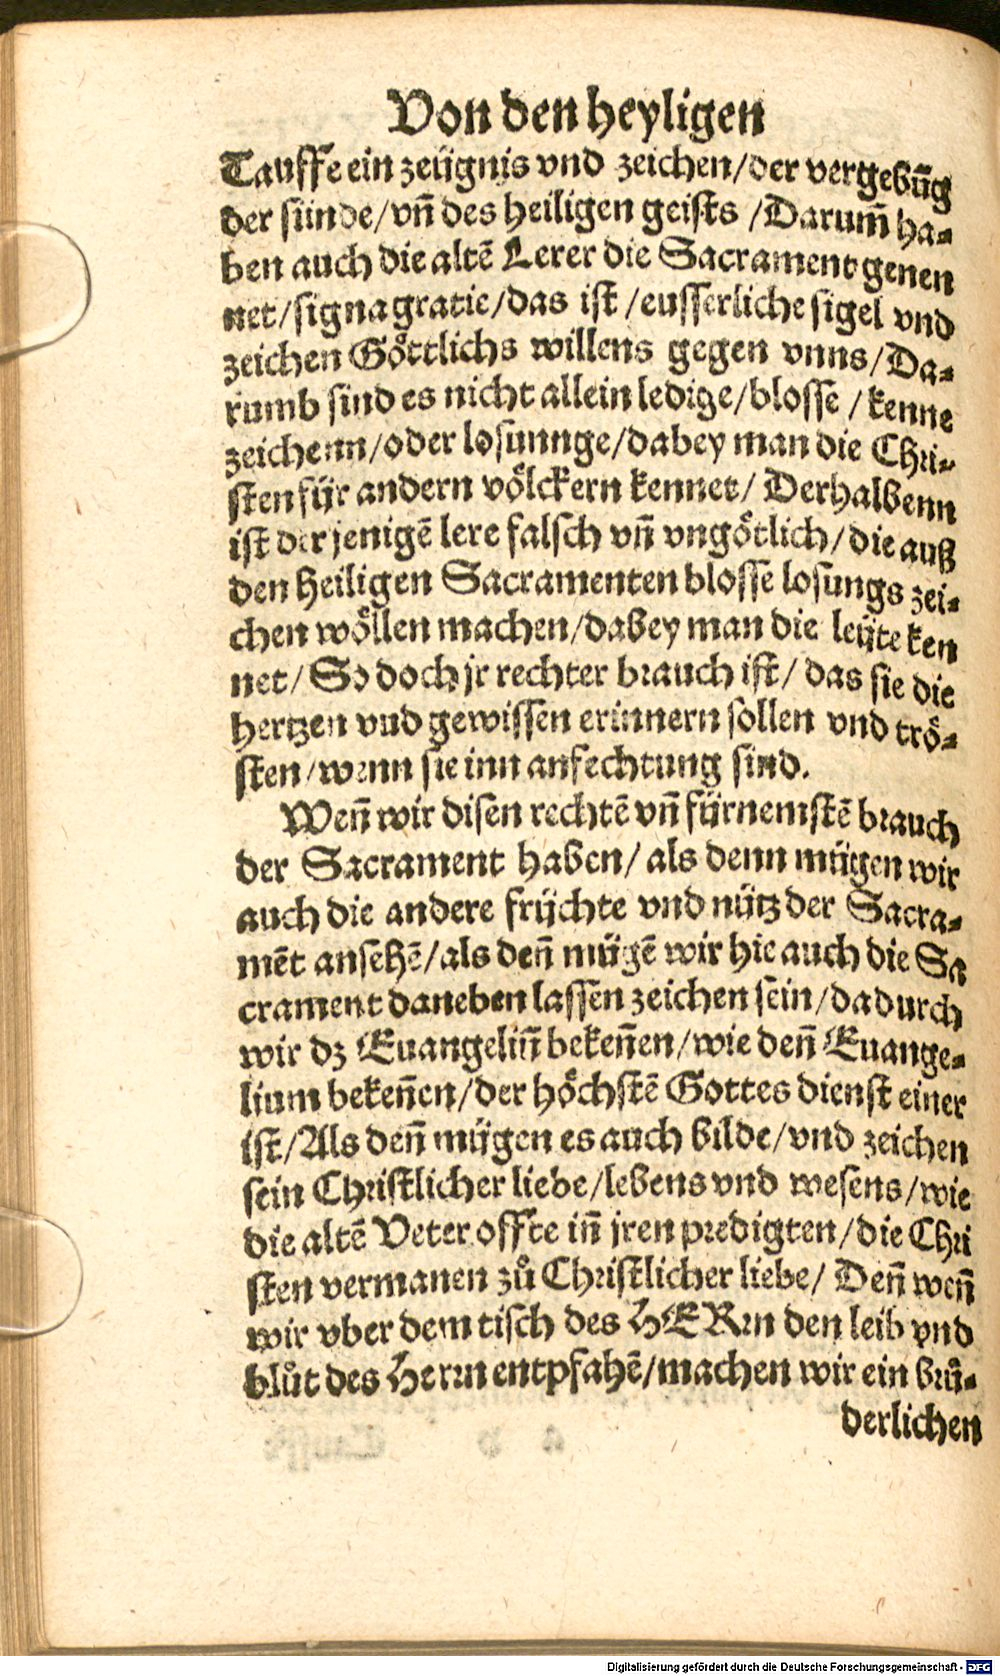 Von den heyligen
Tauffe ein zeügnis vnd zeichen/der vergebūg
der sünde/vn̄ des heiligen geists /Darum̄ ha-
ben auch die altē Lerer die Sacrament genen
net/signa gratie/das ist /eusserliche sigel vnd
zeichen Göttlichs willens gegen vnns/Da-
rumb sind es nicht allein ledige/blosse /kenne
zeichenn/oder losunnge/dabey man die Chri-
sten für andern völckern kennet/ Derhalbenn
ist der jenigē lere falsch vn̄ vngötlich/die auß
den Heiligen Sacramenten blosse losungs zei-
chen wöllen machen/dabey man die leüte ken
net/ So doch jr rechter brauch ist/ das sie die
hertzen vud gewissen erinnern sollen vnd trö-
sten/wenn sie inn anfechtung sind.
Wen̄ wir disen rechtē vn̄ fürnemstē brauch
der Sacrament haben/ als denn mügen wir
auch die andere früchte vnd nütz der Sacra-
mēt ansehē/als den̄ mügē wir hie auch die Sa
crament daneben lassen zeichen sein/dadurch
wir dz Euangeliū beken̄en/wie den̄ Euange-
lium beken̄en/der höchstē Gottes dienst einer
ist/Als den̄ mügen es auch bilde/vnd zeichen
sein Christlicher liebe/lebens vnd wesens/wie
die altē Veter offte in̄ jren predigten/die Chri
sten vermanen zů Christlicher liebe/ Den̄ wen̄
wir vber dem tisch des HERrn den leib vnd
blůt des Herrn entpfahē/machen wir ein brů-
derlichen
Digitalisierung gefördert durch die Deutsche Forschungsgemeinschaft - DFG